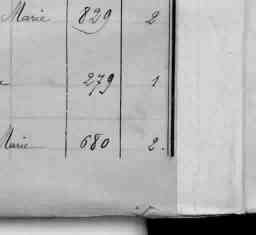 Marie 829 2
279 1
Marie 680 2.